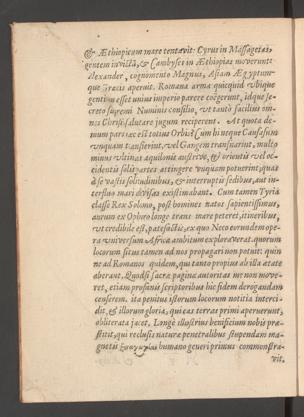 & Æthiopicum mare tentavit: Cyrus in Massagetas,
gentem invictā, & Cambyses in Æthiopias moverunt:
Alexander, cognomento Magnus, Asiam Ægyptum-
que Græcis aperuit. Romana arma quicquid ubique
gentium esset unius imperio parere coëgerunt, idque se-
creto supremi Numinis consilio, ut tantò facilius om-
nes Christi salutare jugum reciperent. At quota de-
mum pars hæc est totius Orbis? Cum hi neque Caucasum
unquam transierint, vel Gangem transnarint, multo
minus ultimas aquilonis austrive, & orientis vel oc-
cidentis solis partes attingere unquam potuerint; quas
à se vastis solitudinibus, & interruptis sedibus, aut in-
terfluo mari divisas existimabant. Cum tamen Tyria
classe Rex Solomo, post homines natos sapientissimus,
aurum ex Ophiro longe trans mare peteret, itineribus,
ut credibile est, patefactis, ex quo Neco eorundem ope-
ra universum Africæ ambitum exploraverat. quorum
locorum situs tamen ad nos propagari non potuit: quin
ne ad Romanos quidem, qui tanto propius ab illa ætate
aberant. Quod si sacræ paginæ autoritas me non move-
ret, etiam profanis scriptoribus hic fidem derogandam
censerem. ita penitus istorum locorum notitia interci-
dit, & illorum gloria, qui eas terras primi aperuerunt,
obliterata jacet. Longè illustrius beneficium nobis præ-
stitit, qui reclusis naturæ penetralibus stupendam ma-
gnetis humano generi primus commonstra-
vit,